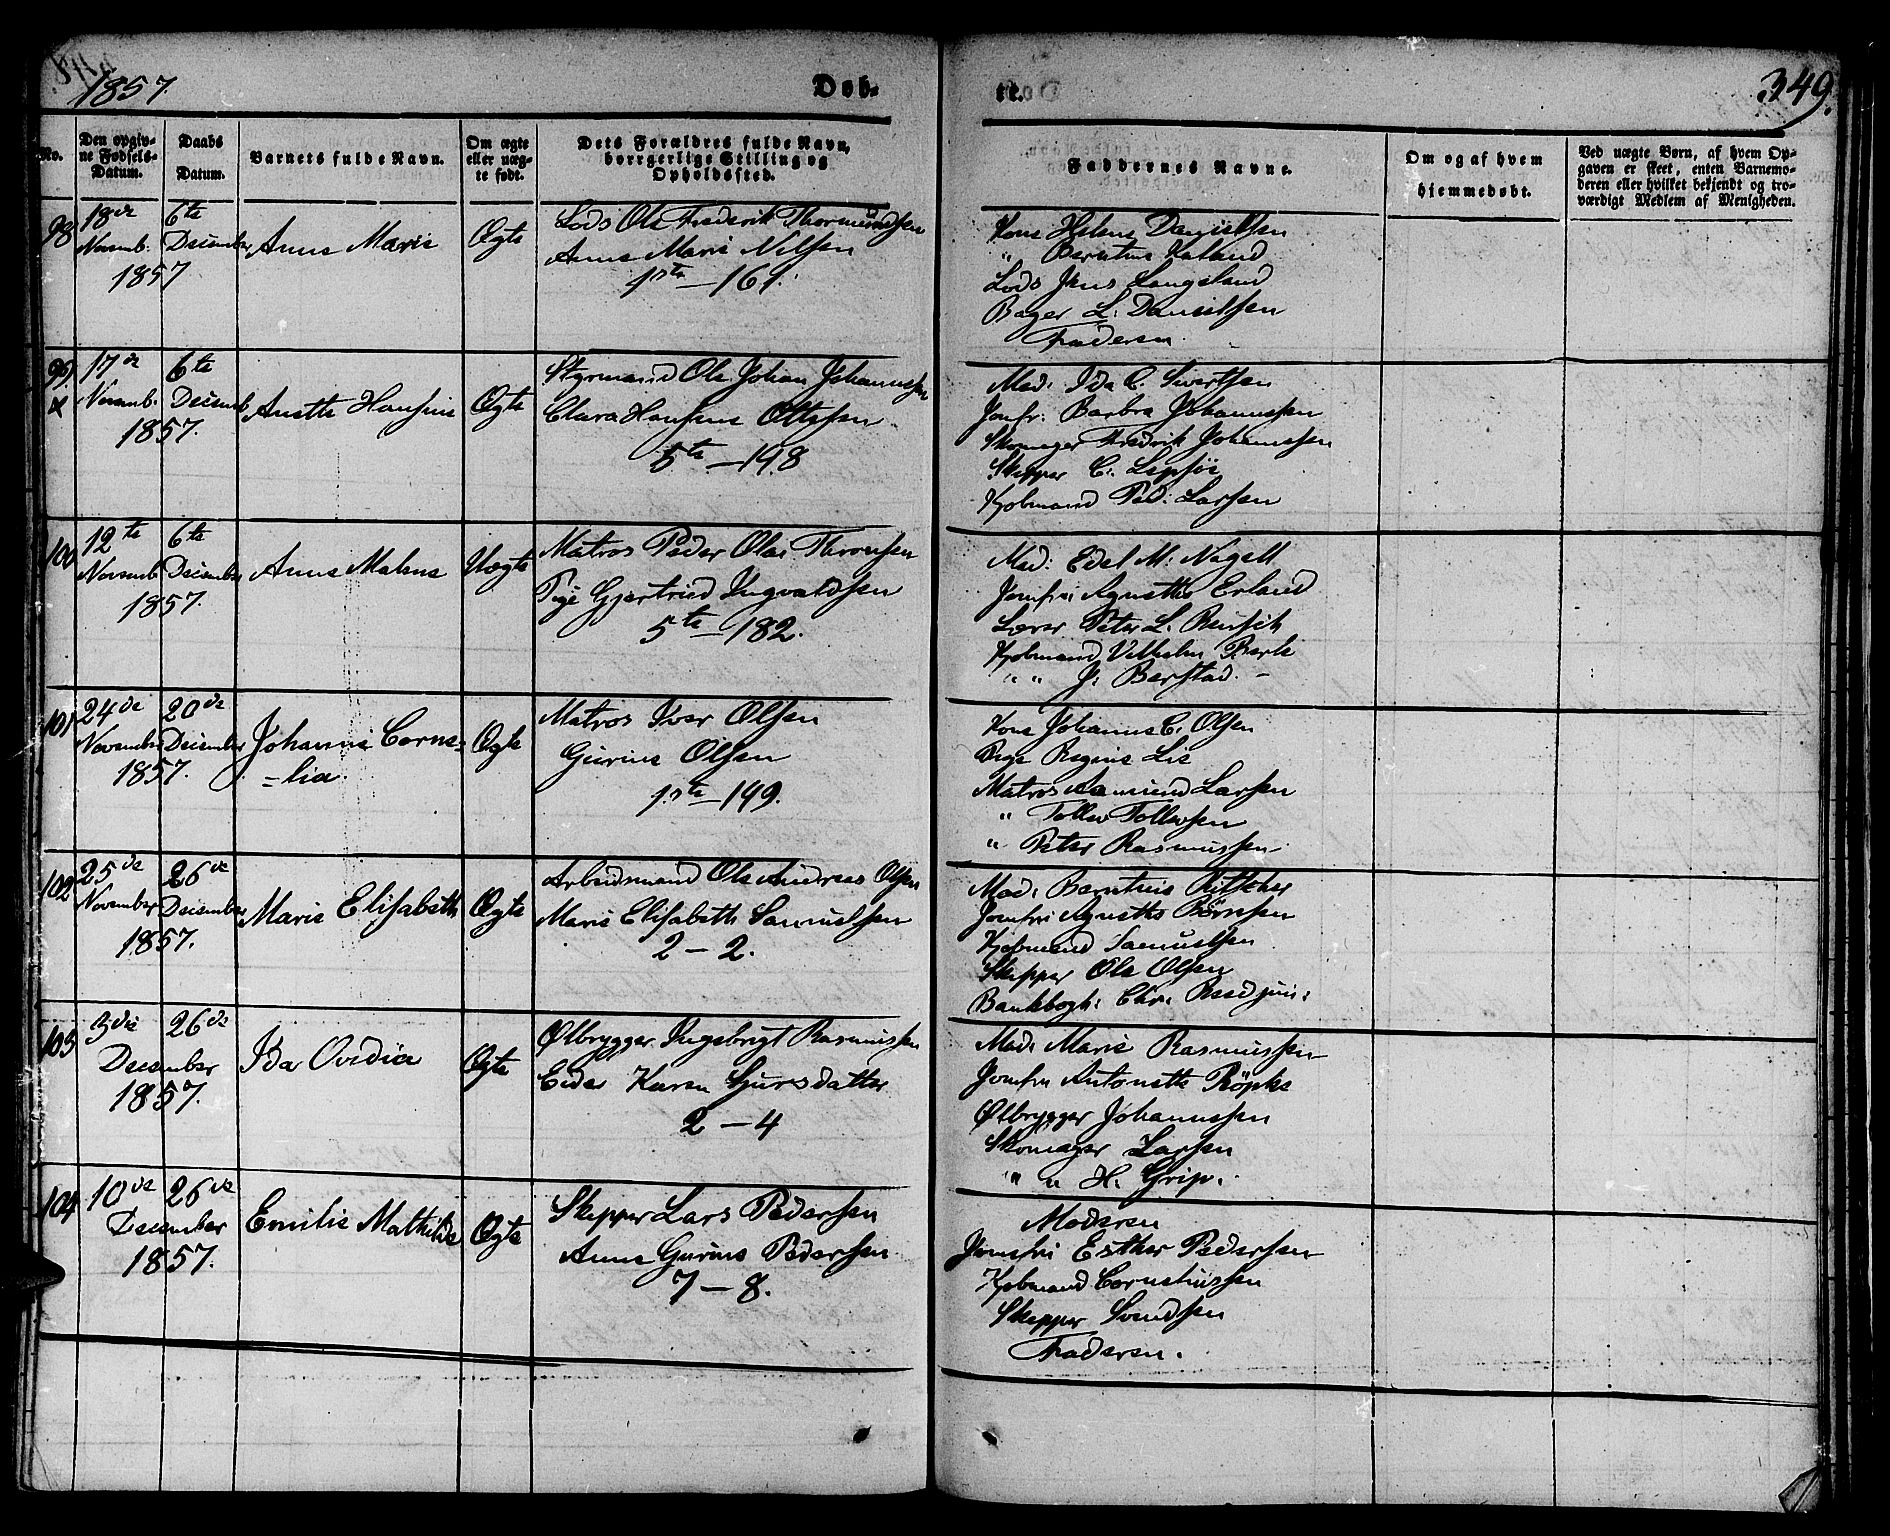 1857.
Døb-
te.
349.
No.
Den opgiv-
ne Fødsels-
Datum.
Daabs
Datum.
Barnets fulde Navn.
Om ægte
eller uæg-
te født.
Dets Forældres fulde Navn,
borgerlige Stilling og
Opholdssted.
Faddernes Navne.
Om og af hvem
hjemmedøbt.
Ved uægte Børn, af hvem Op-
gaven er skeet, enten Barnemo-
deren eller hvilket bekjendt og tro-
værdigt Medlem af Menigheden.
98
18de
Novemb.
1857
6te
Desember
Anne Marie
Ægte
Lods Ole Frederik Thormundsen
Anne Marie Nilsen
1ste - 161.
Kone Helene Danielsen
" Berntine Haland
Lods Jens Langeland
Bager L. Danielsen
Faderen.
99
x
17de
Novemb.
1857.
6te
Desemb.
Anette Hansine
Ægte
Styrmand Ole Johan Johannesen
Clara Hansine Ottesen
5te - 148
Mad. Ida C. Sivertsen
Jomfr. Barbra Johannessen
Skomager Fredrik Johannessen
Skipper C.
Kjøbmand Ped. Larsen
100
12te
Novemb.
1857.
6te
Desember
Anne Malene
Uægte
Matros Peder Olai Thronsen
Pige Gjertrud Ingvaldsen
5te - 182.
Mad. Edel M. Nagell
Jomfru Agnethe Erland
Lærer Peter L.
Kjøbmand Vilhelm
" " J. Berstad. -
101
24de
November
1857.
20de
Desember
Johanne Corne-
-lia.
Ægte
Matros Iver Olsen
Gurine Olsen
1ste - 149.
Kone Johanne C. Olsen
Pige Regine Lie
Matros Aamund Larsen
" Tollev Tollevsen
" Peter Rasmussen
102
25de
November
1857.
26de
Desember
Marie Elisabeth
Ægte
Arbeidsmand Ole Andreas Olsen
Marie Elisabeth Samuelsen
2 - 2.
Mad. Berntine
Jomfru Agnethe Børresen
Kjøbmand Samuelsen
Skipper Ole Olsen
Bankbogh. Chr. Reed jun.
103
3die
26de
Desember
1857.
Ida Ovidia
Ægte
Ølbrygger Ingebrigt Rasmussen
Eider Karen Sjursdatter
2 - 4
Mad. Marie Rasmussen
Jomfru Antonette Röpke
Ølbrygger Johannessen
Skomager Larsen
" " H. Grip.
104
10de
26de
Desember
1857.
Emilie Mathilde
Ægte
Skipper Lars Pedersen
Anne Gurine Pedersen
7 - 8.
Moderen
Jomfru Esther Pedersen
Kjøbmand Corneliussen
Skipper Svendsen
Faderen.